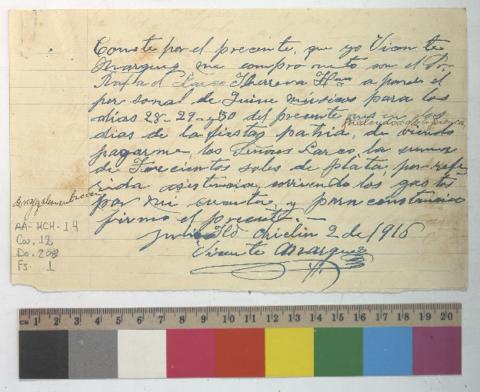 Conste por el presente, que yo Vicente
Marquez me comprometo con el Sr.
Rafael Larco Herrera Hnos a poner el
personal de músicos para los
días 28-29 y 30 del presente mes en los
días de la fiestas patria, debiendo
pagarme los Señores Larco la suma
de Trecientos soles de plata, por refe
rida asistencia, corriendo los gastos
por mi cuenta, y para constancia
firmo el presente.—
Julio Chiclin 2 de 1916
Vicente Marquez
AA-HCH-14
Ca. 12
Do. 208
Fs. 1
cm 1 2 3 4 5 6 7 8 9 10 11 12 13 14 15 16 17 18 19 20